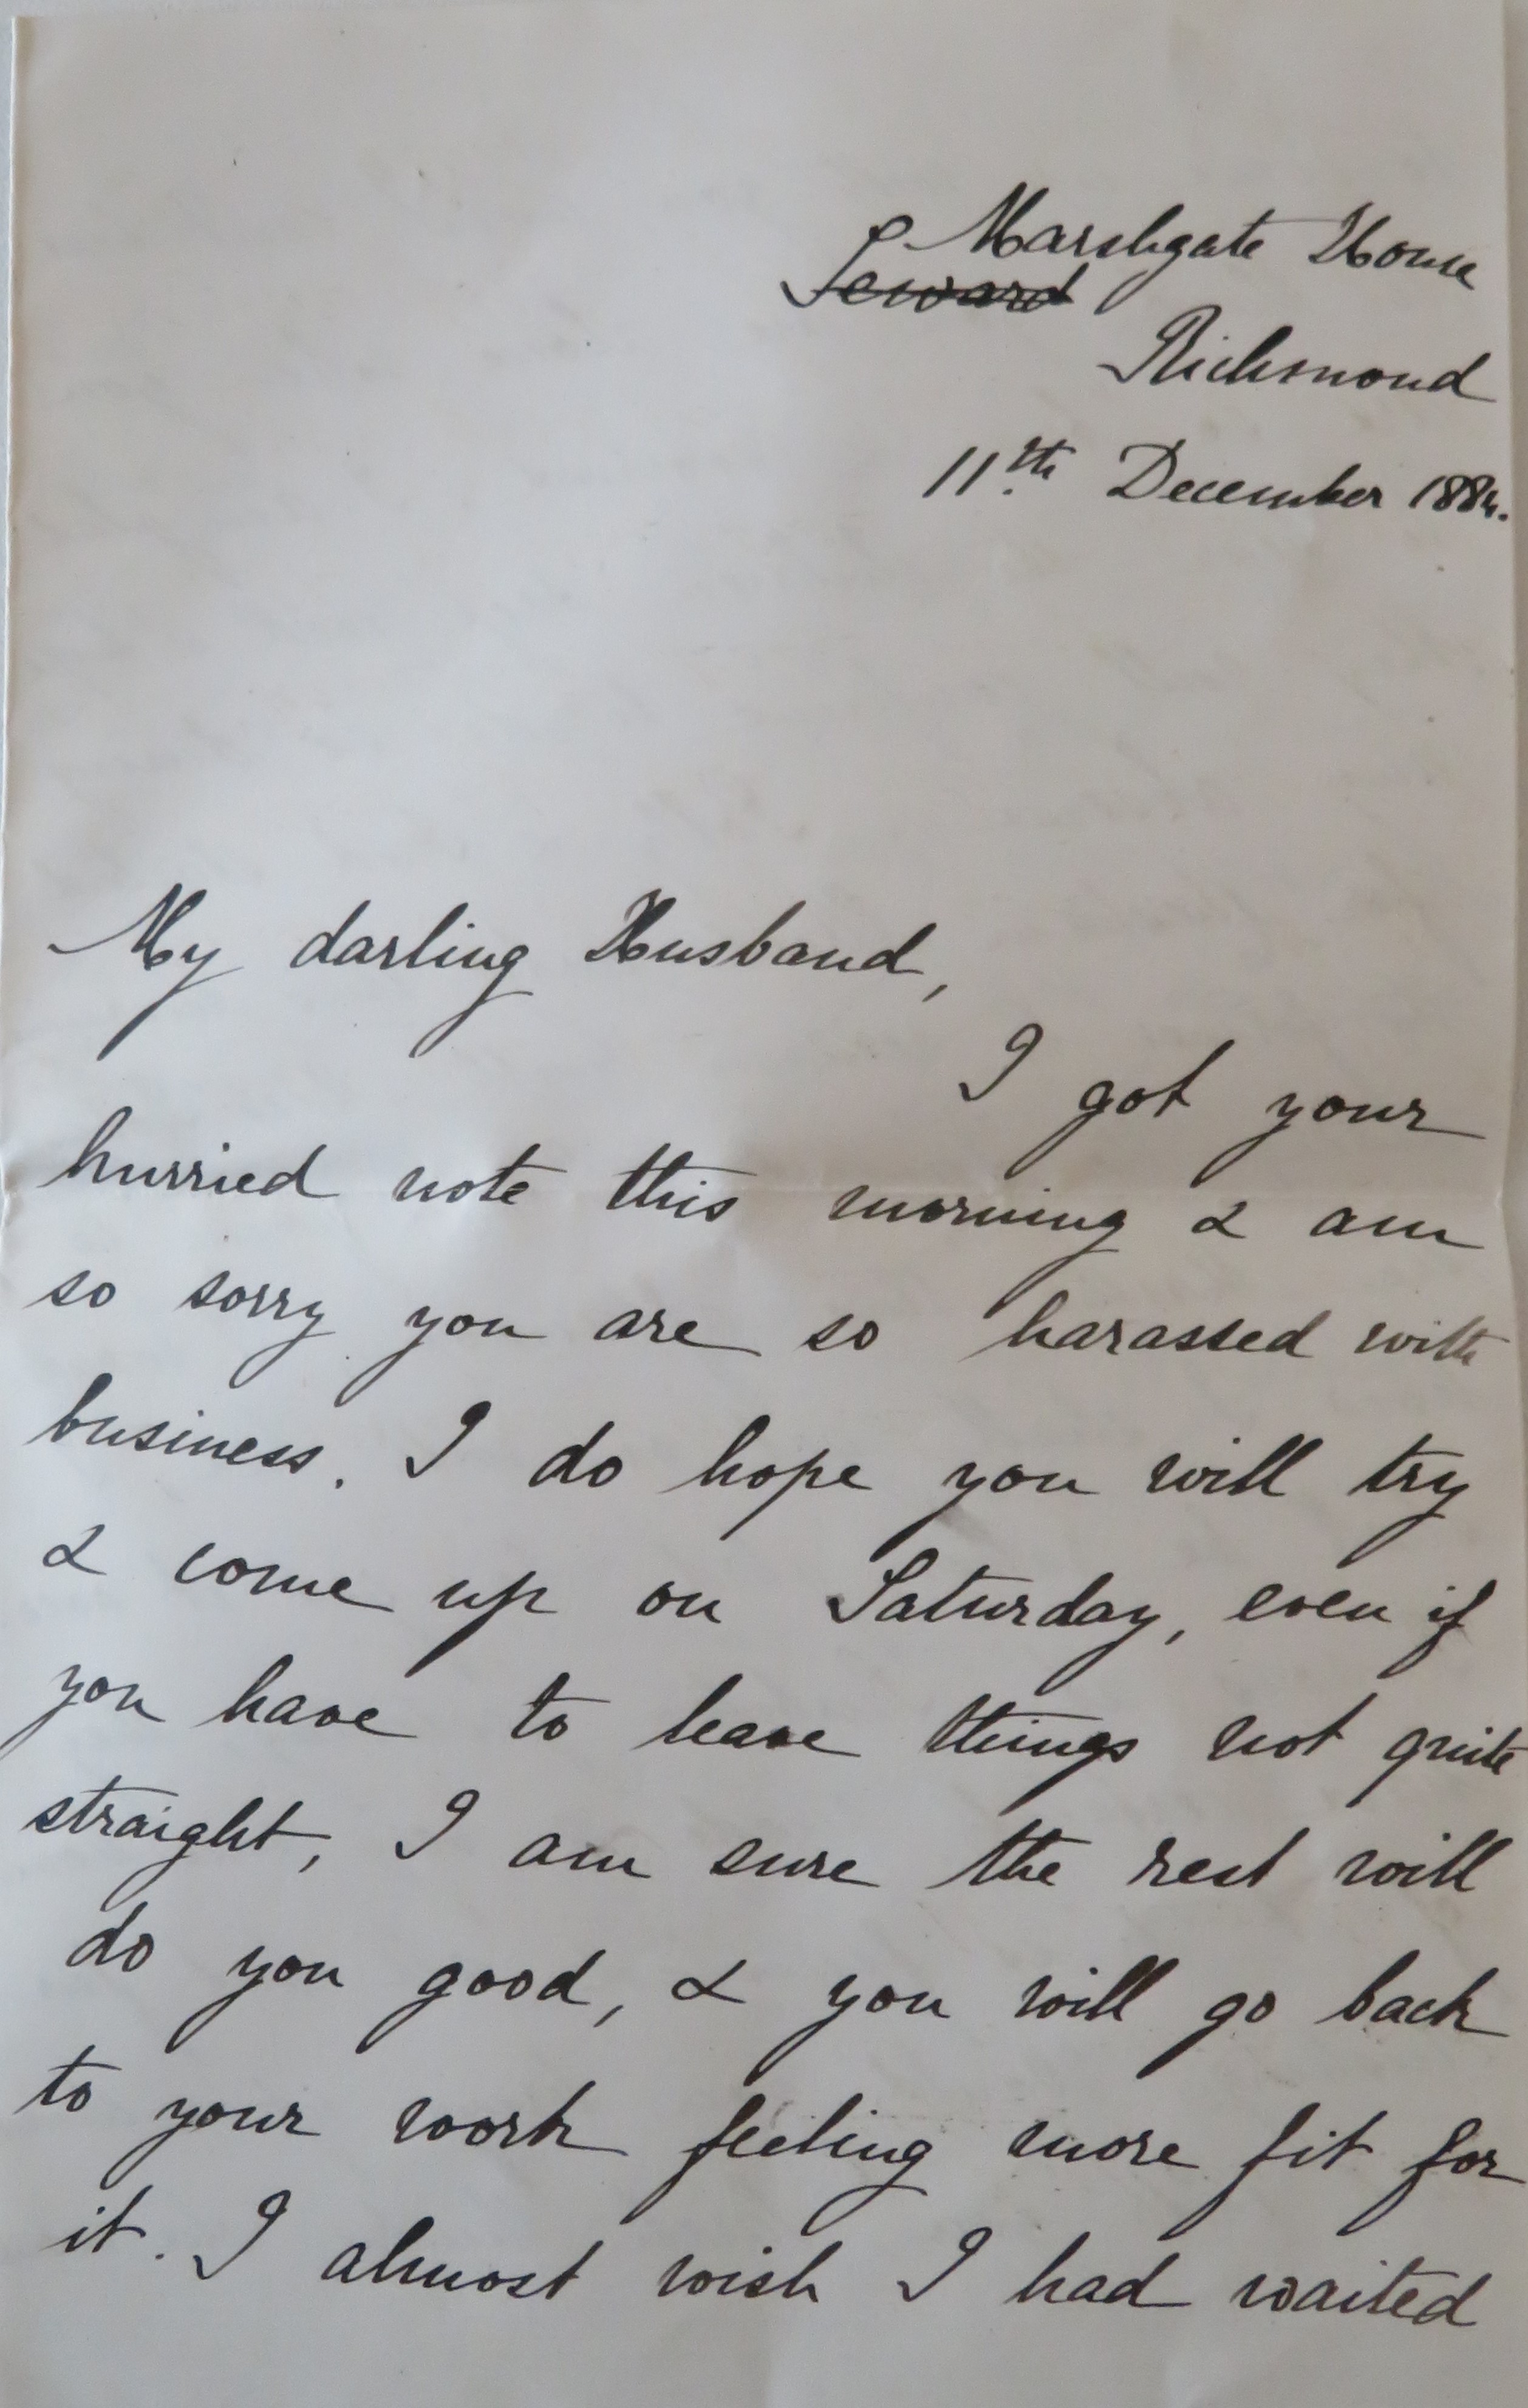 Marshgate House
Seward
Richmond
11th December 1884.
My darling Husband,
I got your
hurried note this morning & am
so sorry you are so harassed with
business. I do hope you will try
& come up on Saturday, even if
you have to leave things not quite
straight, I am sure the rest will
do you good, & you will go back
to your work feeling more fit for
it. I almost wish I had waited